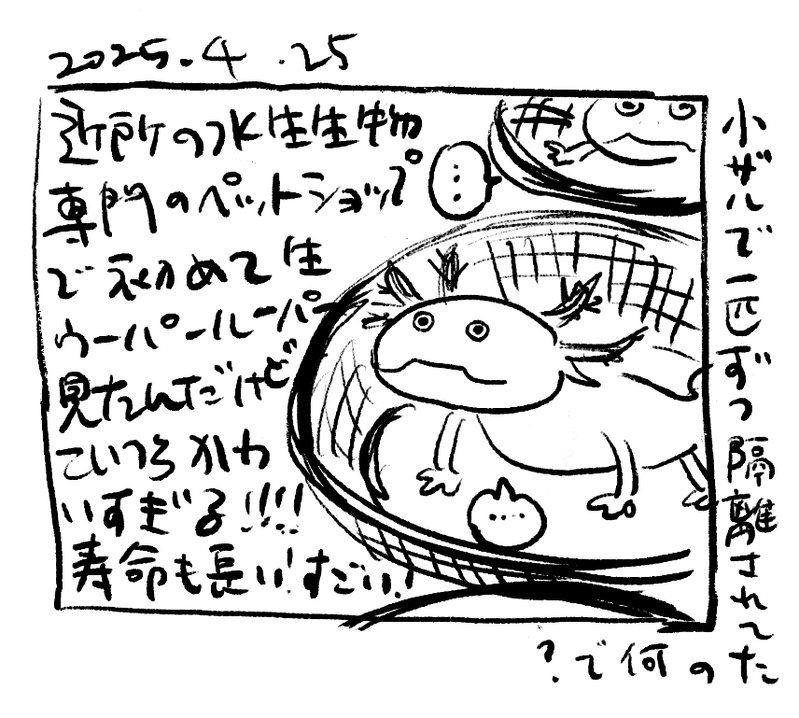 2025.4.25
近所の水生生物
専門のペットショップ
で初めて生
ウーパールーパー
見たんだけど
こいつらかわ
いすぎる!!!!
寿命も長い!すごい!
…
…
小ザルで一匹ずつ隔離されてた
の何で?